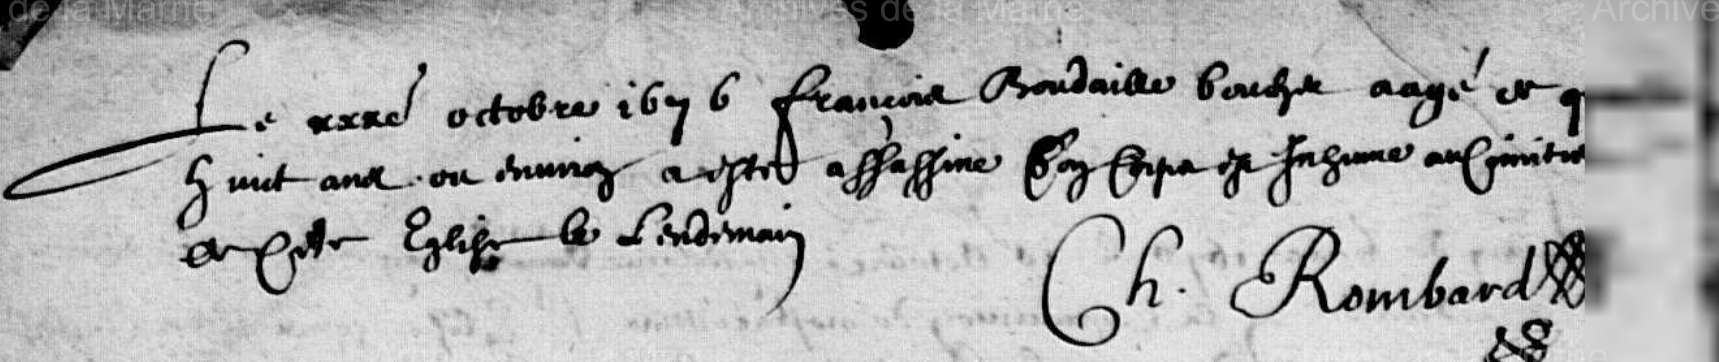 de la Marne Archives de la Marne Archive
Le xxxe octobre 1676 francois Boudaille boucher aagé de q
huit ans ou environ a esté assassine Son Corps est Inhume au Cimitie
de Cette Eglise le Lendemain
Ch. Rombard